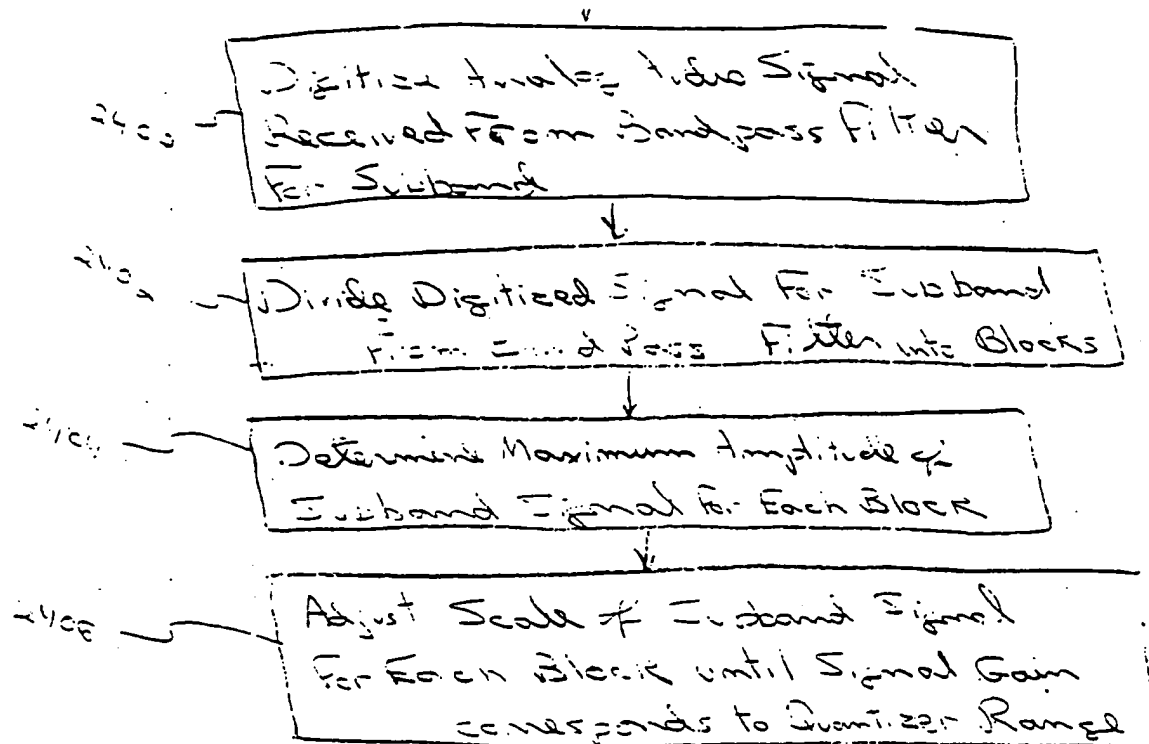 Digitize Analog Audio Signal
Received From Bandpass Filter
For Subband
Divide Digitized Signal For Subband
From Band Pass Filter into Blocks
2404
Determine Maximum Amplitude of
Subband Signal For Each Block
Adjust Scale of Subband Signal
For Each Block until Signal Gain
corresponds to Quantizer Range